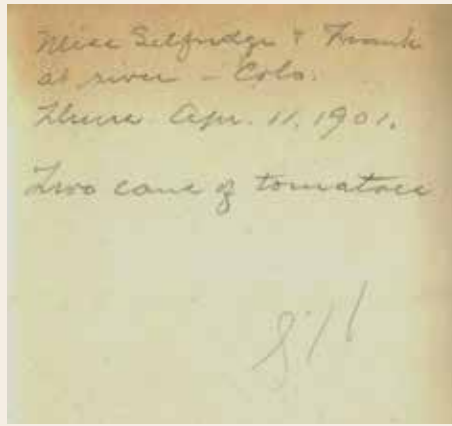 Miss Selfridge & Frank
at river - Colo.
Thurs. Apr. 11, 1901.
Two cans of tomatoes